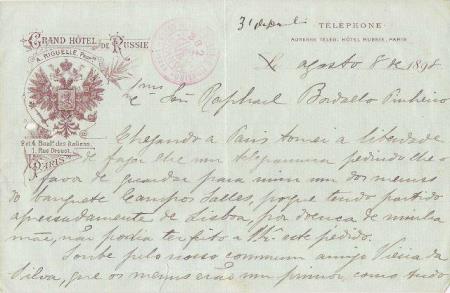 GRAND HÔTEL DE RUSSIE
A. RIGUELLE Propre
2 et 4, Boulᵈ des Italiens
1, Rue Drouot
PARIS
TÉLÉPHONE
ADRESSE TÉLÉG. HÔTEL RUSSIE, PARIS
agosto 8 de 1898
Snr Raphael Bordallo Pinheiro
Chegando a Paris tomei a liberdade
de fazer lhe um telegramma pedindo lhe o
favor de guardar para mim um dos menus
do banquete Campos Salles, porque tendo partido
apressadamente de Lisboa, por doença de minha
mãe, não podia ter feito a V. este pedido.
Soube pelo nosso commum amigo Vieira da
Silva, que os menus erão um primor, como tudo